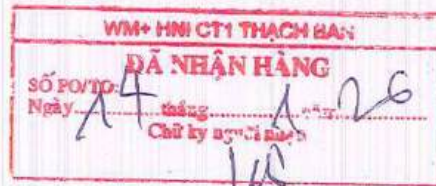 WM+ HNI CT1 THẠCH BÀN
ĐÃ NHẬN HÀNG
SỐ PO/TO:
Ngày 14 tháng 1 năm 26
Chữ ký người nhận